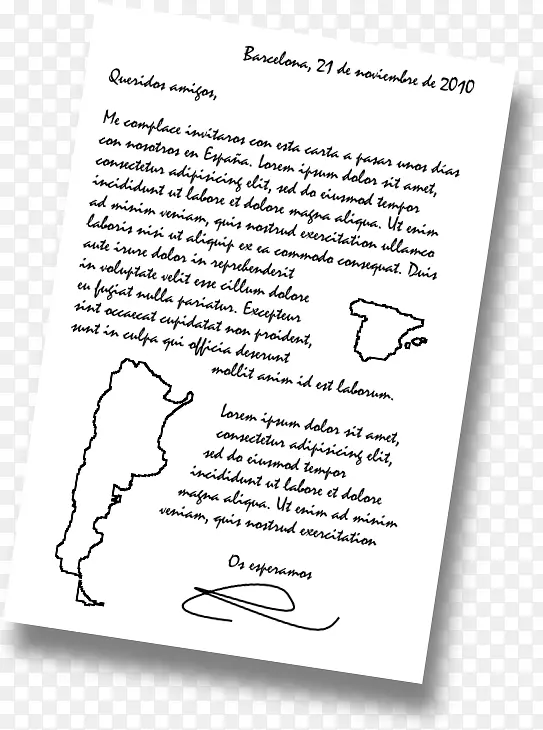 Barcelona, 21 de noviembre de 2010
Queridos amigos,
Me complace invitaros con esta carta a pasar unos días
con nosotros en España. Lorem ipsum dolor sit amet,
consectetur adipisicing elit, sed do eiusmod tempor
incididunt ut labore et dolore magna aliqua. Ut enim
ad minim veniam, quis nostrud exercitation ullamco
laboris nisi ut aliquip ex ea commodo consequat. Duis
aute irure dolor in reprehenderit
in voluptate velit esse cillum dolore
eu fugiat nulla pariatur. Excepteur
sint occaecat cupidatat non proident,
sunt in culpa qui officia deserunt
mollit anim id est laborum.
Lorem ipsum dolor sit amet,
consectetur adipisicing elit,
sed do eiusmod tempor
incididunt ut labore et dolore
magna aliqua. Ut enim ad minim
veniam, quis nostrud exercitation
Os esperamos